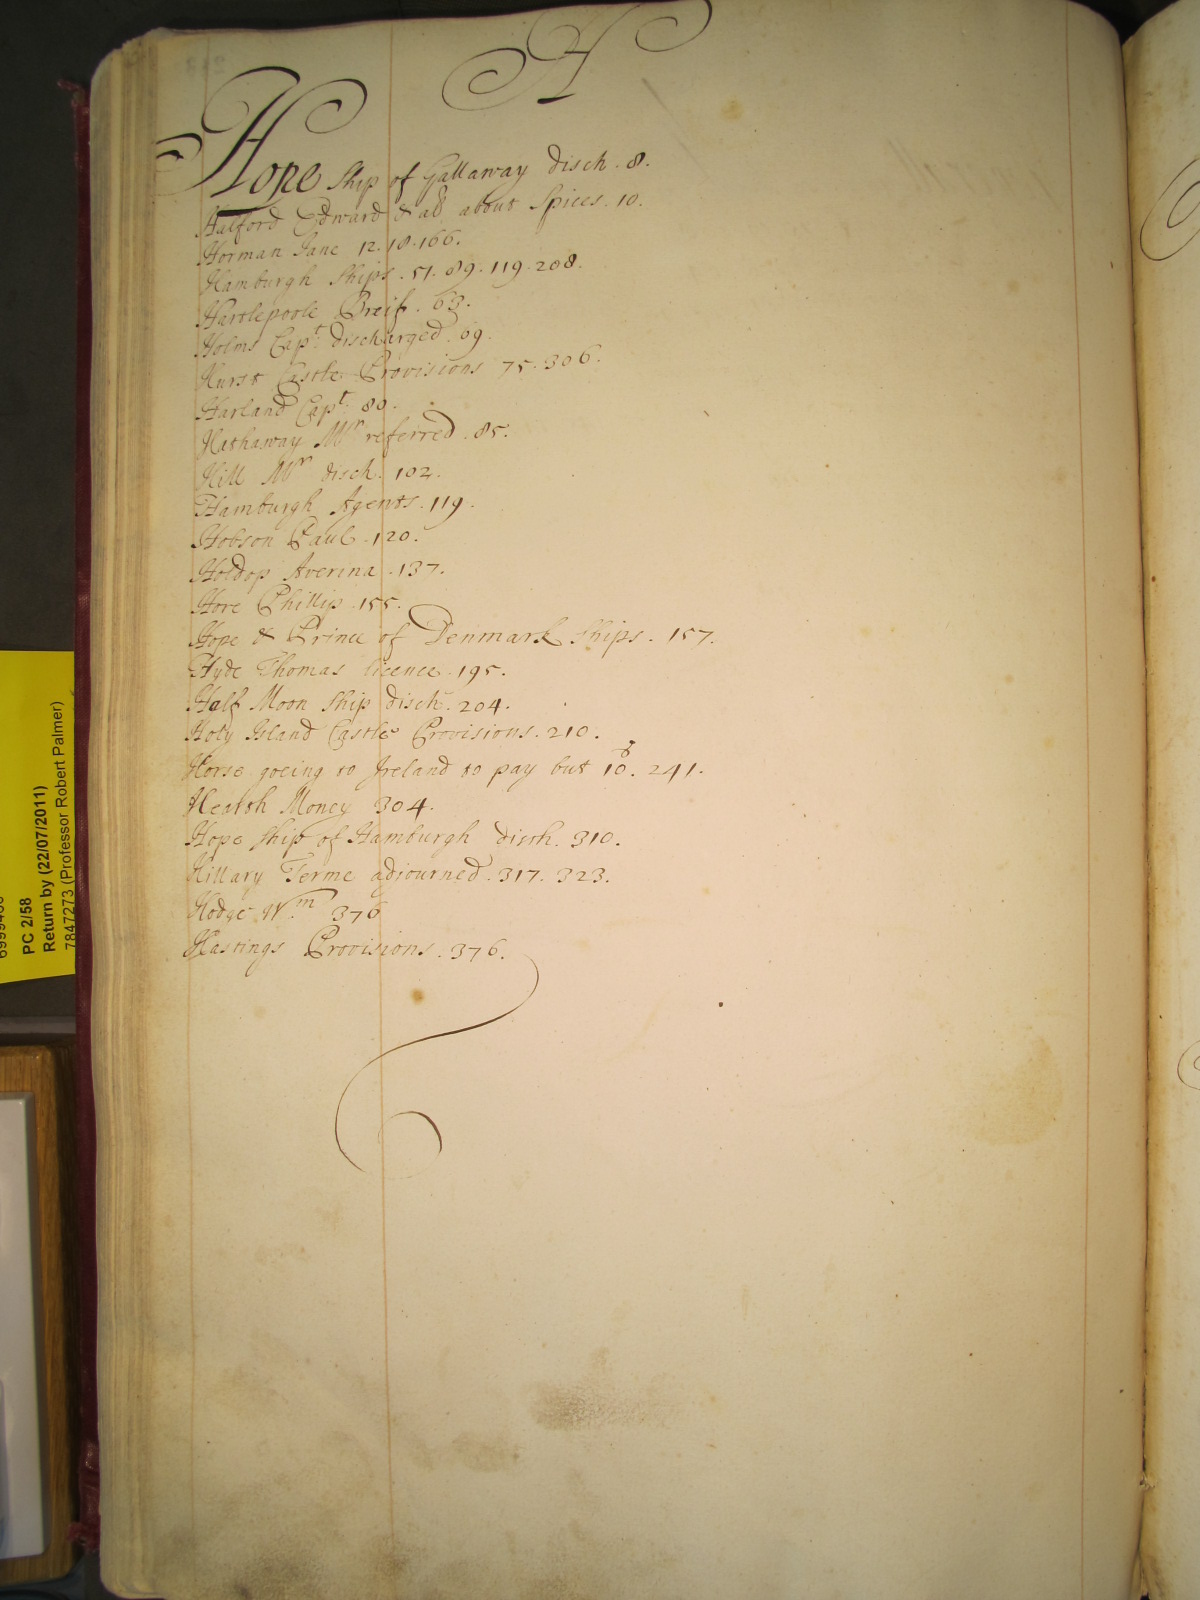 H
Hope ship of Gallaway disch. 8.
Halford Edward & al about Spices. 10.
Horman Jane 12. 18. 166.
Hamburgh Ships. 51. 89. 119. 208.
Hartlepoole Breif. 63.
Holms Capt: discharged. 69.
Hurst Castle Provisions 75. 306.
Harland Capt: 80.
Hathaway Mr referred. 85.
Hill Mr disch. 102.
Hamburgh Agents. 119.
Hobson Paul. 120.
Holdop Averina. 137.
Hore Phillip. 155.
Hope & Prince of Denmark Ships. 157.
Hyde Thomas licence. 195.
Half Moon Ship disch. 204.
Holy Island Castle Provisions. 210.
Horse goeing to Ireland to pay but 10. 241.
Hearth Money 304.
Hope ship of Hamburgh disch. 310.
Hillary Terme adjourned. 317. 323.
Hodge Wm 376
Hastings Provisions. 376.
PC 2/58
Return by (22/07/2011)
7847273 (Professor Robert Palmer)